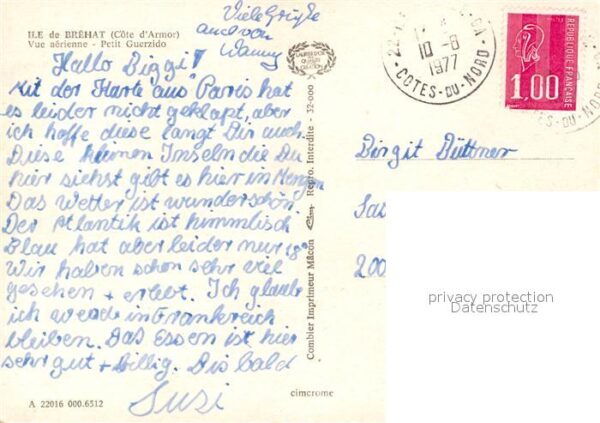 ILE de BRÉHAT (Côte d'Armor)
Vue aérienne - Petit Guerzido
Viele Grüße
auch von
Hallo Biggi!
Mit der Karte "aus" Paris hat
es leider nicht geklapt, aber
ich hoffe diese langt Dir auch.
Diese kleinen Inseln die Du
hier siehst gibt es hier in Mengen
Das Wetter ist wunderschön.
Der Atlantik ist himmlisch
Blau hat aber leider nur 18°
Wir haben schon sehr viel
gesehen + erlebt. Ich glaube
ich werde in Frankreich
bleiben. Das Essen ist hier
sehr gut + billig. Bis bald
Susi
A 22016 000.6512
cimcrome
Combier Imprimeur Mâcon
Repro. Interdite - 32-000
10-8
1977
COTES-DU-NORD
1.00
REPUBLIQUE FRANÇAISE
Birgit Düttner
200
privacy protection
Datenschutz